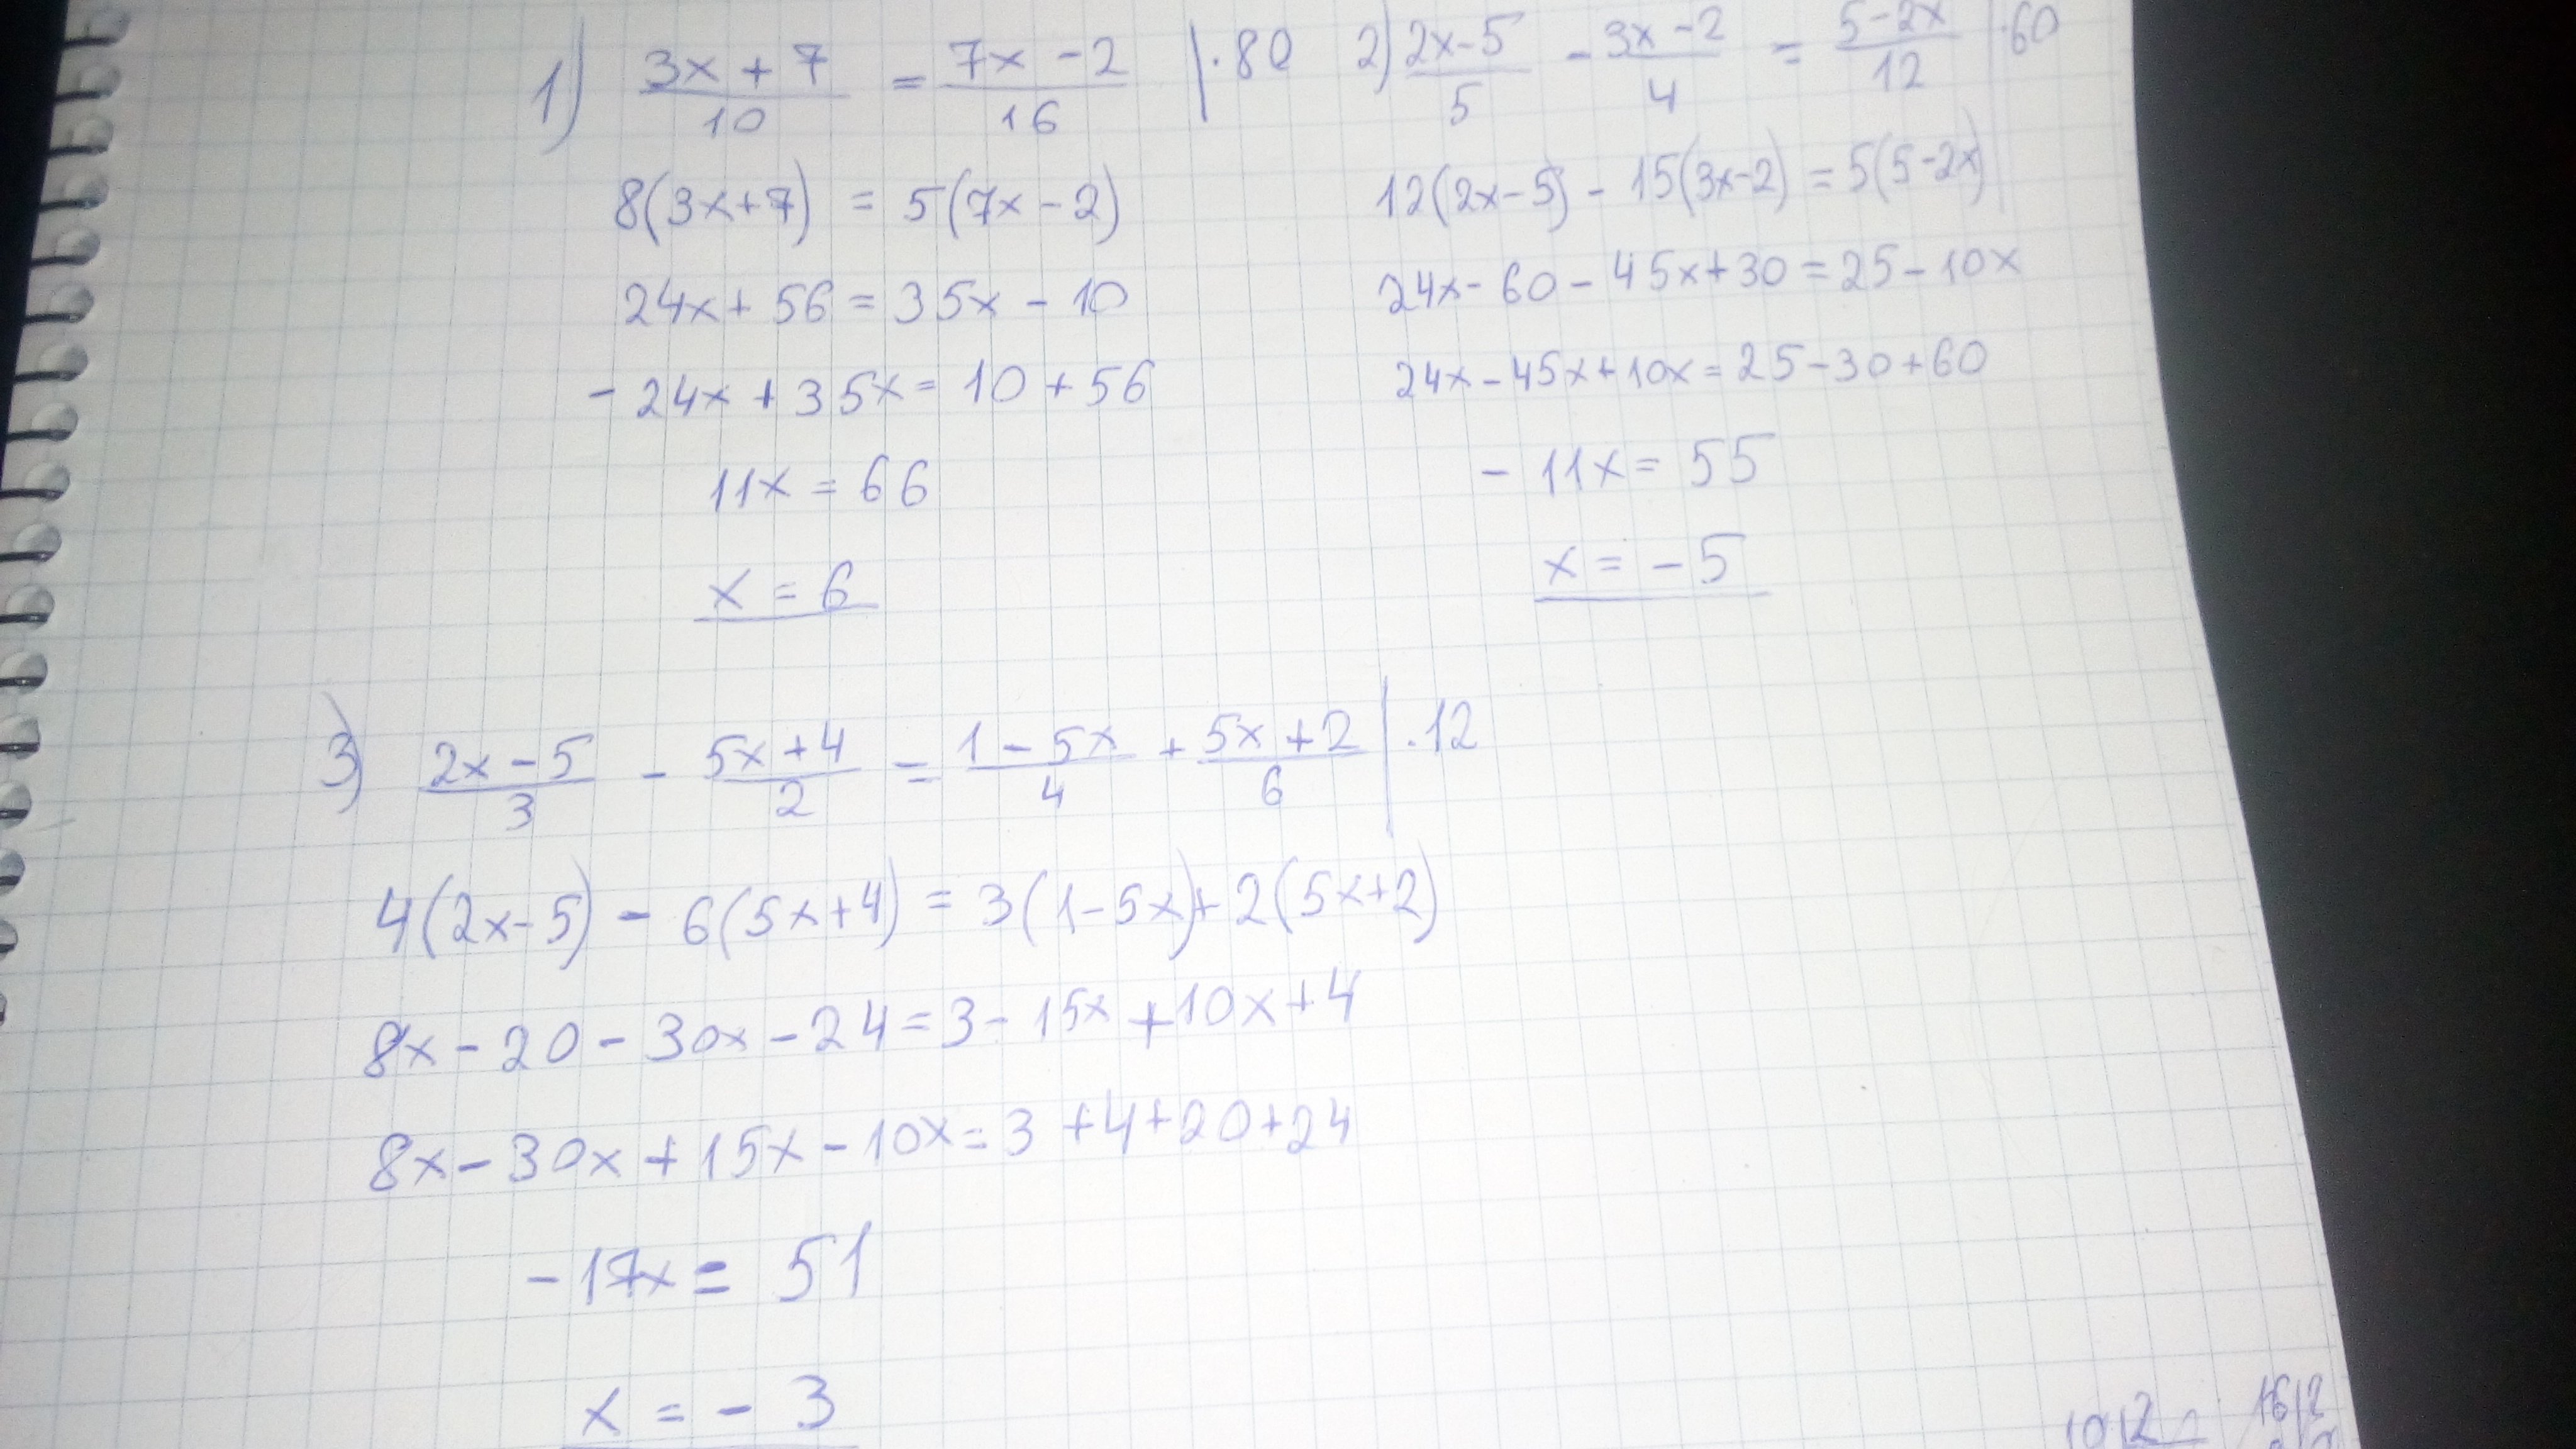 1) (3x + 7)/10 = (7x - 2)/16 | · 80
8(3x+7) = 5(7x - 2)
24x + 56 = 35x - 10
- 24x + 35x = 10 + 56
11x = 66
x = 6
2) (2x-5)/5 - (3x-2)/4 = (5-2x)/12 | · 60
12(2x-5) - 15(3x-2) = 5(5-2x)
24x - 60 - 45x + 30 = 25 - 10x
24x - 45x + 10x = 25 - 30 + 60
- 11x = 55
x = - 5
3) (2x - 5)/3 - (5x + 4)/2 = (1 - 5x)/4 + (5x + 2)/6 | · 12
4(2x-5) - 6(5x+4) = 3(1-5x) + 2(5x+2)
8x - 20 - 30x - 24 = 3 - 15x + 10x + 4
8x - 30x + 15x - 10x = 3 + 4 + 20 + 24
- 17x = 51
x = - 3
10|2 16|2